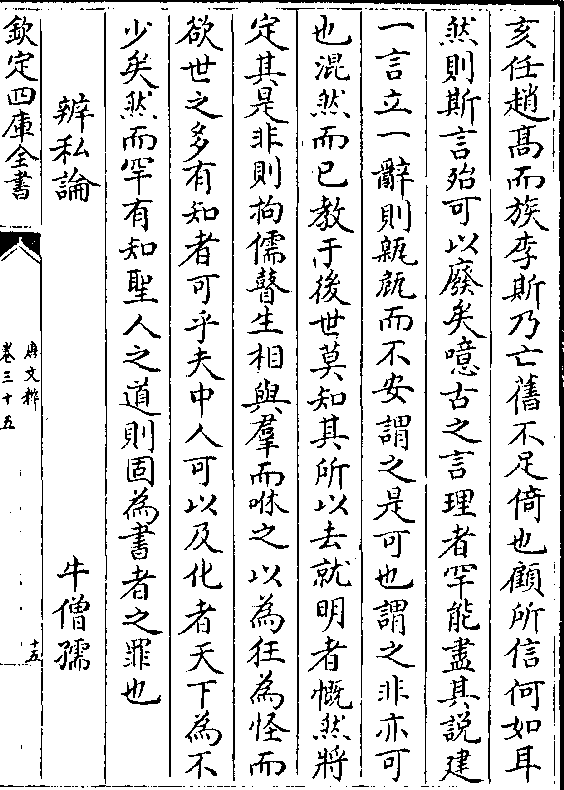 亥任趙髙而族李斯乃亡舊不足倚也顧所信何如耳
然則斯言殆可以廢矣噫古之言理者罕能盡其説建
一言立一辭則臲卼而不安謂之是可也謂之非亦可
也混然而已教于後世莫知其所以去就明者慨然將
定其是非則拘儒瞽生相與羣而咻之以為狂為怪而
欲世之多有知者可乎夫中人可以及化者天下為不
少矣然而罕有知聖人之道則固為書者之罪也
辨私論 牛僧孺
欽定四庫全書
唐文粹
卷三十五
十五